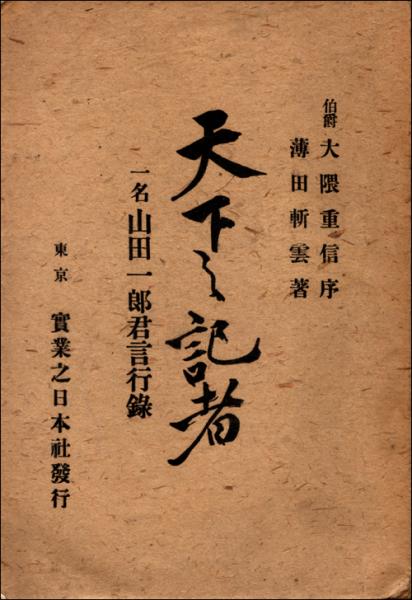 伯爵 大隈重信序
薄田斬雲著
天下之記者
一名 山田一郎君言行錄
東京 實業之日本社發行